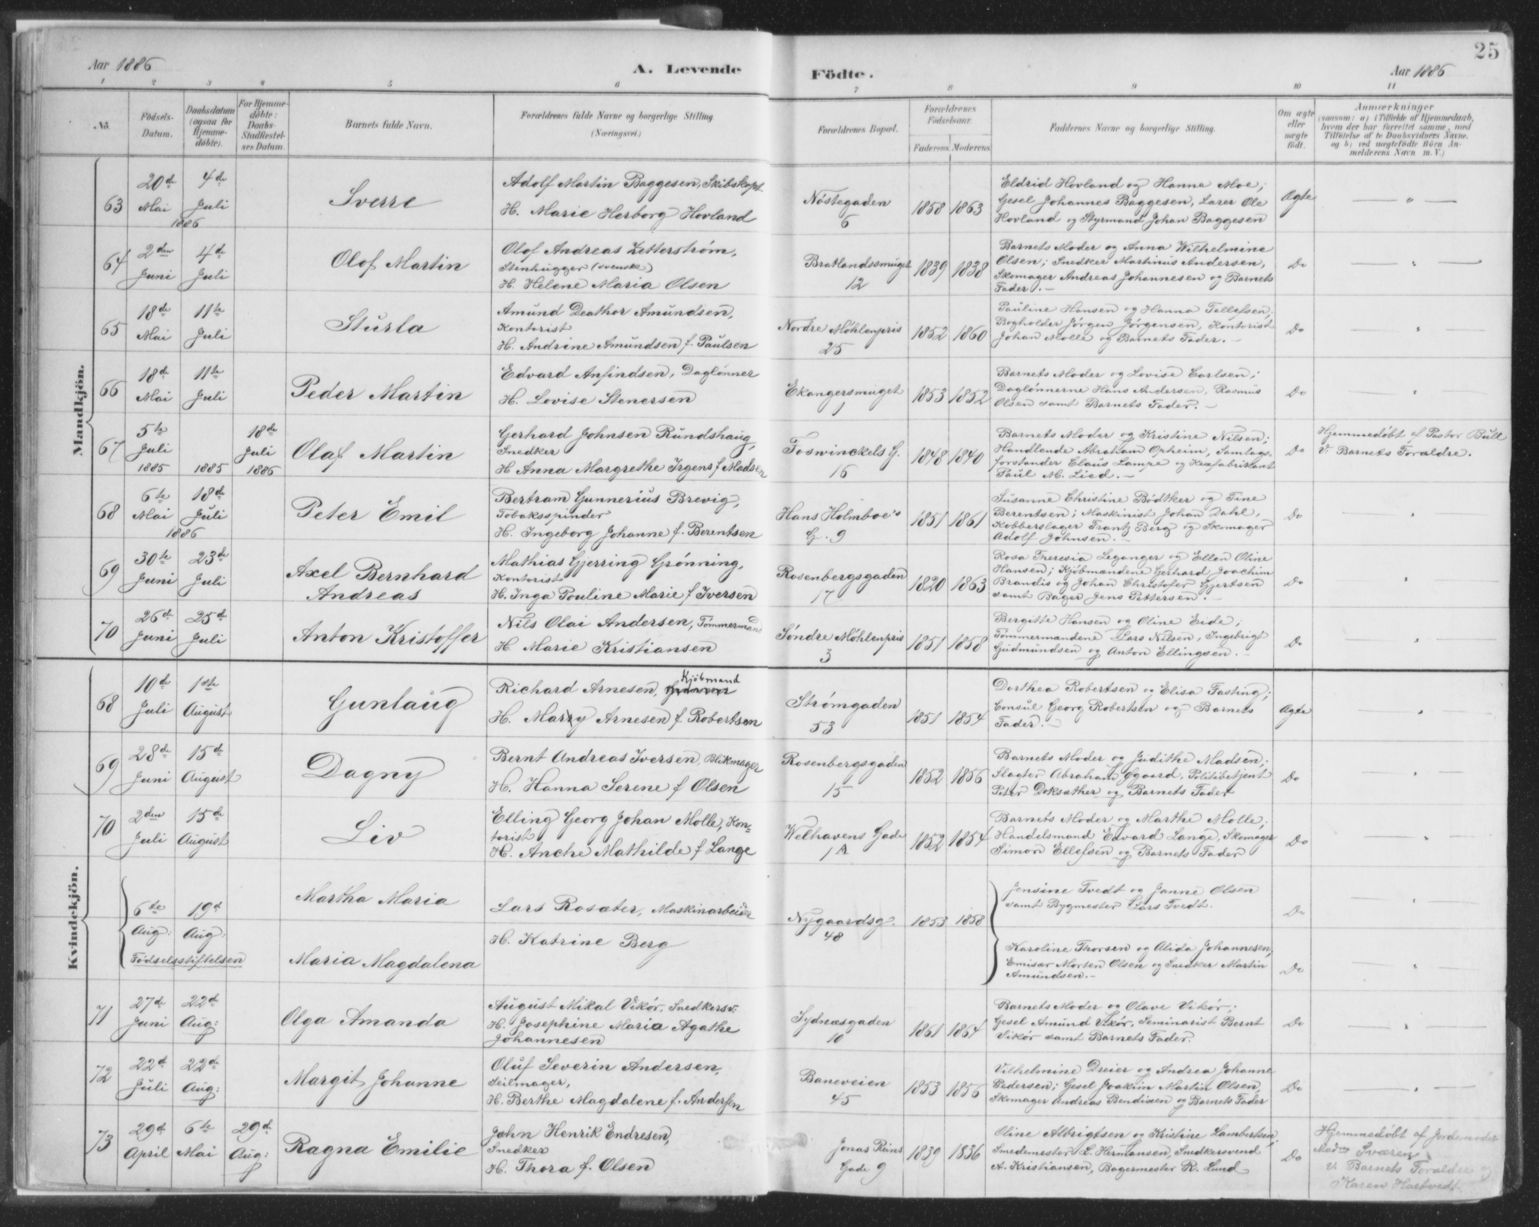 Aar 1886
A. Levende
Födte.
Aar 1886
25
1 2 3 4 5 6 7 8 9 10 11
No.
Födsels-Datum.
Daabsdatum (ogsaa for Hjemme-döbte).
For Hjemme-döbte: Daabs-Stadfæstel-ses Datum.
Barnets fulde Navn.
Forældrenes fulde Navne og borgerlige Stilling (Næringsvei.)
Forældrenes Bopæl.
Forældrenes Födselsaar.
Faderens. Moderens.
Faddernes Navne og borgerlige Stilling.
Om ægte eller uægte födt.
Anmærkninger
Mandkjön.
63 20de Mai 4de Juli 1886
Sverre
Adolf Martin Baggesen, Skibskapt.
H. Marie Herborg Hovland
Nöstegaden 6
1858 1863
Eldrid Hovland og Hanna Moe;
Gesel Johannes Baggesen, Lærer Ole
Hovland og Styrmand Johan Baggesen
Ægte
64 2den Juni 4de Juli
Olof Martin
Olof Andreas Zetterström,
Stenhugger (svensk)
H. Helene Maria Olsen
Bratlandssmuget 12
1839 1838
Barnets Moder og Anna Wilhelmine
Olsen; Snedker Martinus Andersen,
Skomager Andreas Johannesen og Barnets
Fader.
Do
65 18de Mai 11te Juli
Sturla
Amund Deathor Amundsen,
Kontorist
H. Andrine Amundsen f. Paulsen
Nordre Möhlenpris 25
1852 1860
Pauline Hansen og Hanna Tellefsen,
Bogholder Jörgen Jörgensen, Kontorist
Johan Molle og Barnets Fader.
Do
66 18de Mai 11te Juli
Peder Martin
Edvard Anfindsen, Daglönner
H. Lovise Stenersen
Ekangersmuget 1
1853 1852
Barnets Moder og Lovise Carlsen;
Daglönnerne Hans Andersen, Rasmus
Olsen samt Barnets Fader.
Do
67 5te Juli 1885 1885 18de Juli 1886
Olaf Martin
Gerhard Johnsen Rundshaug,
Snedker
H. Anna Margrethe Irgens f. Madsen
Foswinckels G. 16
1848 1840
Barnets Moder og Kristine Nilsen;
Handlende Abraham Opheim, Samlags-
forstander Claus Lampe og
Paul M. Lied.
Do
Hjemmedöbt af Pastor Bull
V. Barnets Forældre.
68 6te Mai 18de Juli 1886
Peter Emil
Bertram Gunnerius Brevig,
Tobaksspinder
H. Ingeborg Johanne f. Berentsen
Hans Holmboe's G. 9
1851 1861
Susanne Christine Bödtker og Tine
Berentsen; Maskinist Johan Dahl,
Kobberslager Frantz Berg og Skomager
Adolf Johnsen.
Do
69 30te Juni 23de Juli
Axel Bernhard
Andreas
Mathias Gjerring Grönning,
Kontorist
H. Inga Pouline Marie f. Iversen
Rosenbergsgaden 17
1820 1863
Rosa Theresia Leganger og Ellen Oline
Hansen; Kjöbmændene Gerhard Joachim
Brandis og Johan Christofer Gjertsen
samt Bager Jens Pettersen.
Do
70 26de Juni 25de Juli
Anton Kristoffer
Nils Olai Andersen, Tömmermand
H. Marie Kristiansen
Söndre Möhlenpris 3
1851 1858
Bergitte Hansen og Oline Eide;
Tömmermændene Lars Nilsen, Ingebrigt
Gudmundsen og Anton Ellingsen.
Do
Kvindekjön.
68 10de Juli 1ste August
Gunlaug
Richard Arnesen, Kjöbmand
H. Maszy Arnesen f. Robertson
Strömgaden 53
1851 1854
Dorthea Robertsen og Elisa Fasting;
Consul Georg Robertsen og Barnets
Fader.
Ægte
69 28de Juni 15de August
Dagny
Bernt Andreas Iversen, Blikmager
H. Hanna Serene f. Olsen
Rosenbergsgaden 15
1852 1856
Barnets Moder og Judithe Madsen;
Slagter Abraham Ggaard, Politibetjent
Peter Doksæther og Barnets Fader
Do
70 2den Juli 15de August
Liv
Elling Georg Johan Molle, Kon-
torist
H. Anche Mathilde f. Lange
Welhavens Gade 1A
1852 1854
Barnets Moder og Marthe Molle;
Handelsmand Edvard Lange, Skomager
Simon Ellefsen og Barnets Fader
Do
6te Aug: 19de Aug.
Födselsstiftelsen
Martha Maria
Maria Magdalena
Lars Rosæter, Maskinarbeider
H. Katrine Berg
Nygaardsg. 48
1853 1858
Jensine Tvedt og Janne Olsen
samt Bygmester Lars Tvedt.
Do
Karoline Thorsen og Alida Johannesen,
Emisær Morten Olsen og Snedker Martin
Amundsen.
Do
71 27de Juni 22de Aug:
Olga Amanda
August Mikal Vikör, Snedkersv.
H. Josephine Maria Agathe
Johannesen
Sydnæsgaden 10
1861 1864
Barnets Moder og Olave Vikör;
Gesel Amund Vikör, Seminarist Bernt
Vikör samt Barnets Fader.
Do
72 22de Juli 22de Aug:
Margit Johanne
Oluf Severin Andersen,
Seilmager,
H. Berthe Magdalene f. Andersen
Baneveien 45
1853 1856
Vilhelmine Dreier og Andrea Johanne
Pedersen; Gesel Joakim Martin Olsen,
Skomager Andreas Bendixen og Barnets Fader
Do
73 29de April 6te Mai 29de Aug:
Ragna Emilie
John Henrik Endresen,
Snedker
H. Thora f. Olsen
Jonas Reins Gade 9
1839 1836
Oline Albrigtsen og Kristine Lambertsen,
Smedemester L. Hermansen, Snedkersvend
A. Kristiansen, Bagermester R. Lund
Do
Hjemmedöbt af Jordemoder
Mad. Sværen
V. Barnets Forældre og
Karen Hartvedt